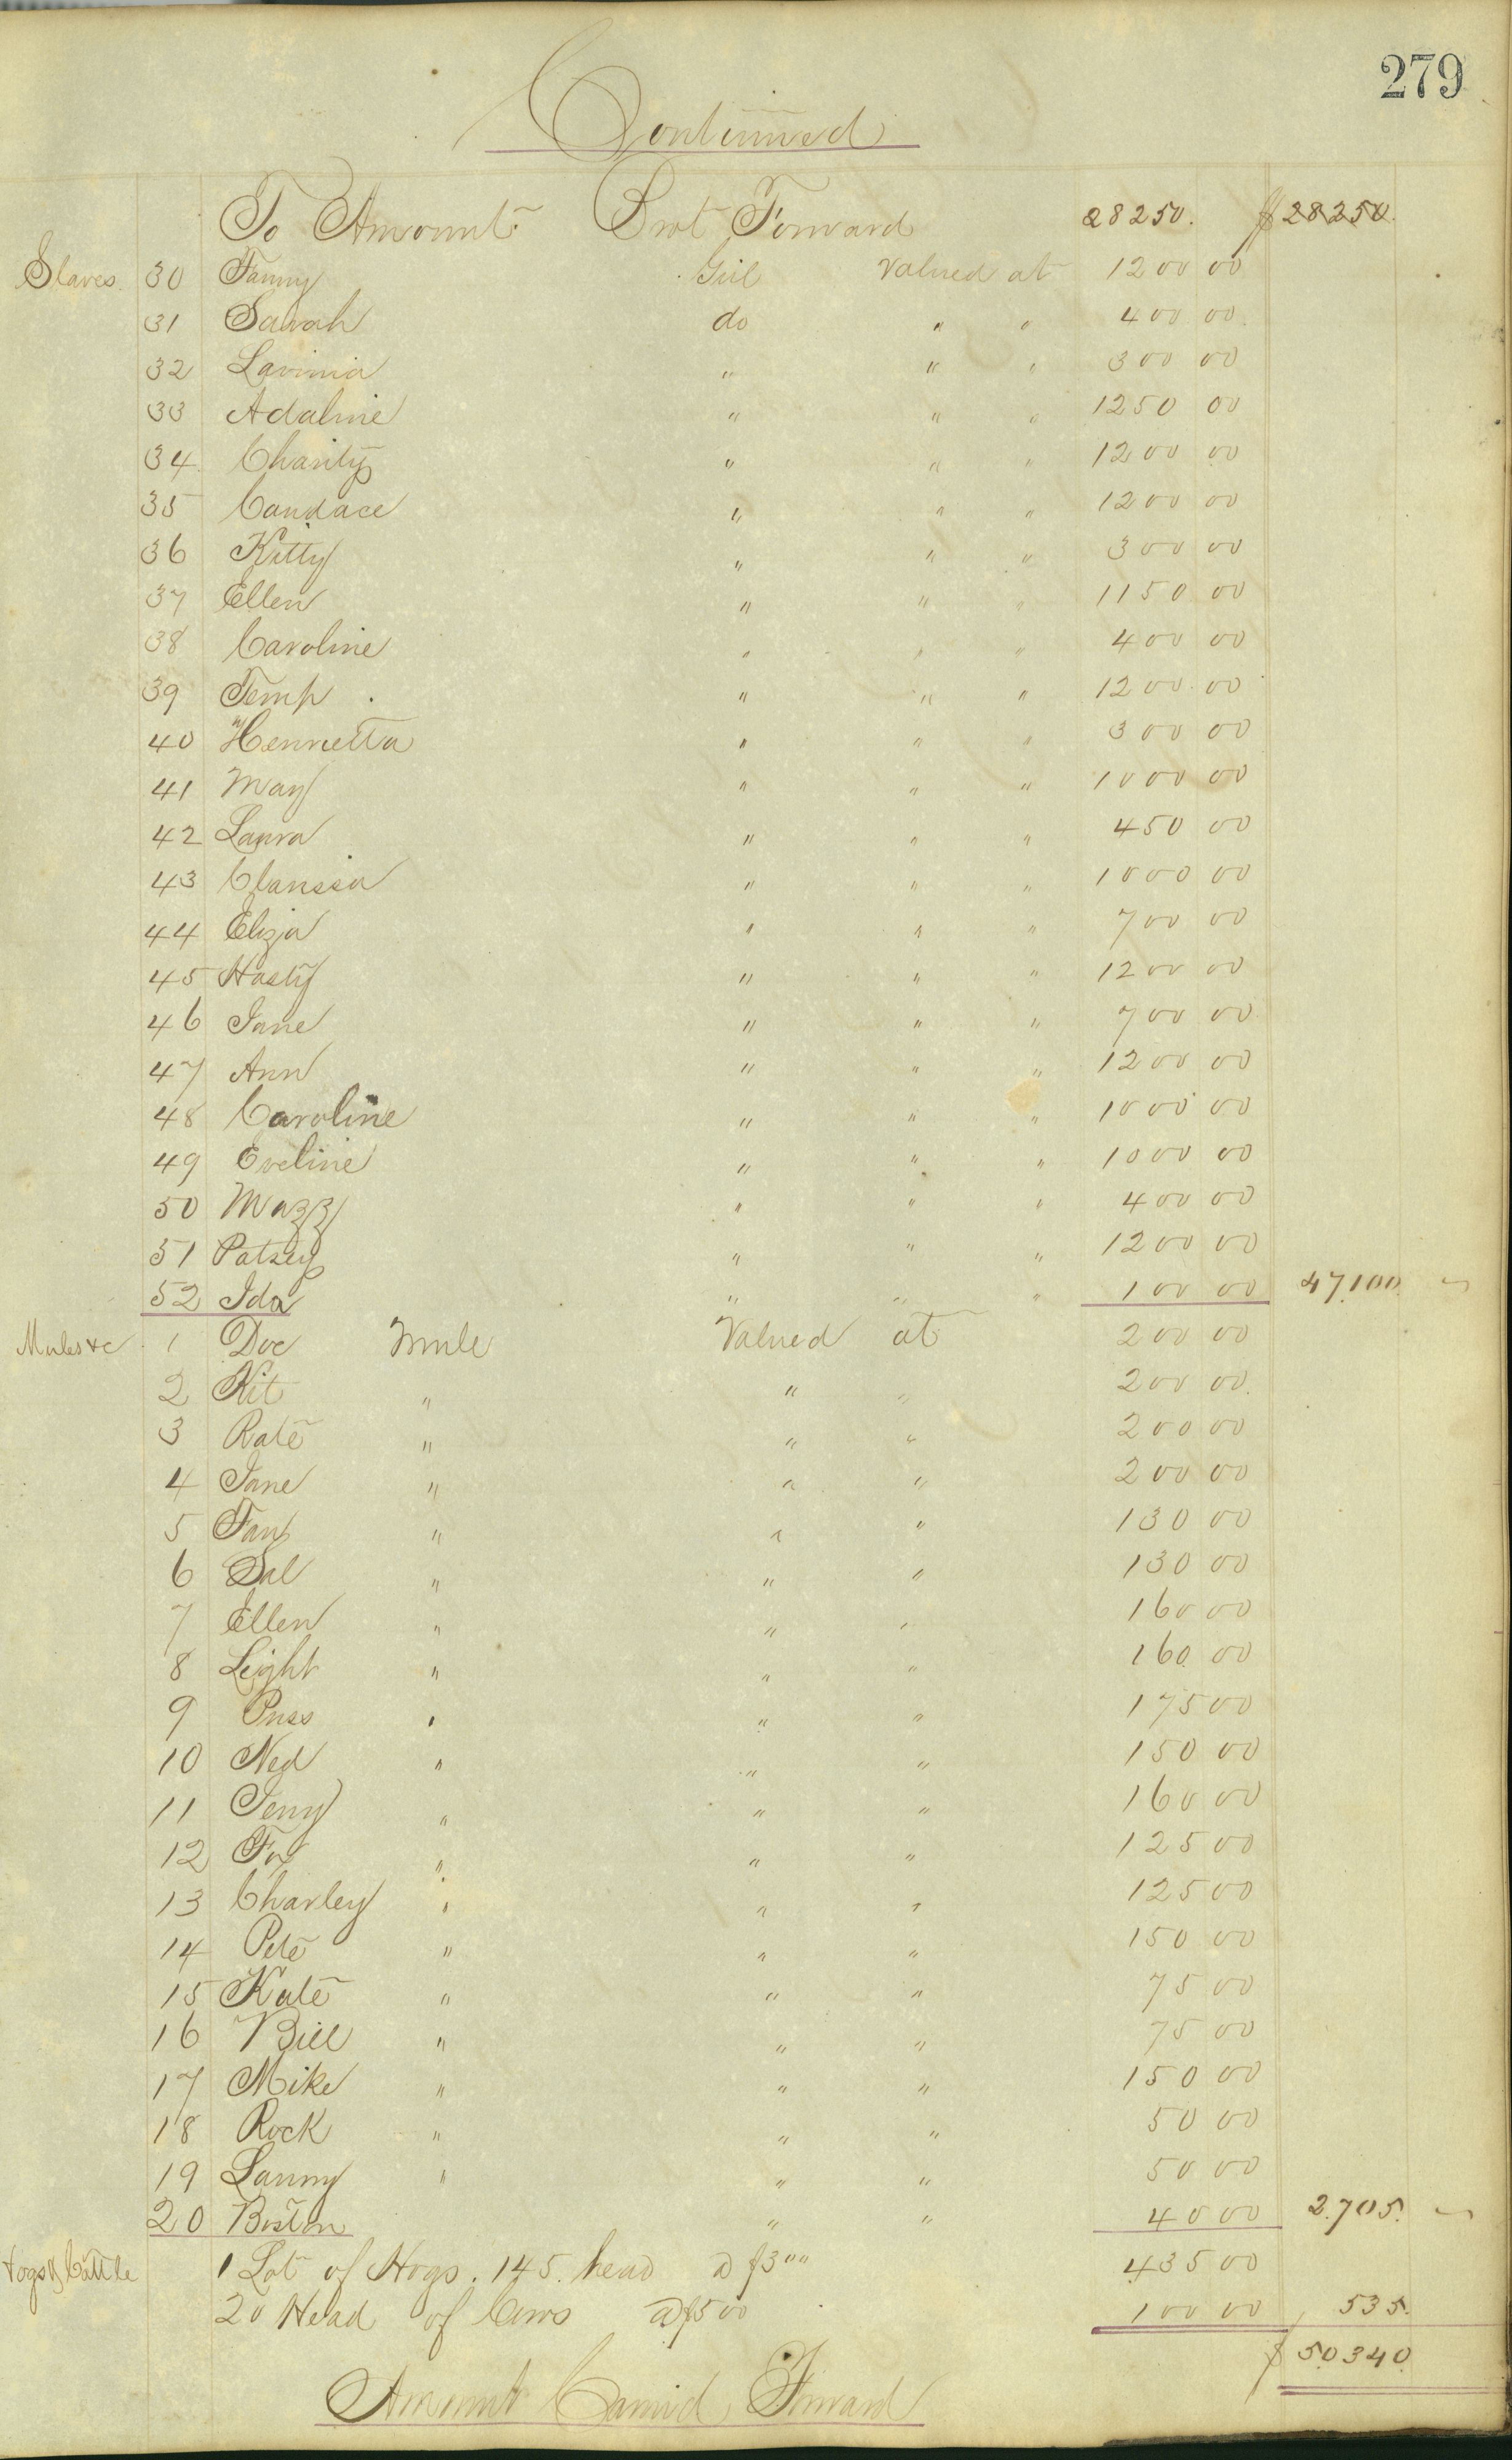 279
Continued
To Amount Brot Forward 28250. $28250.
Slaves. 30 Fanny Girl Valued at 1200 00
31 Sarah do " " 400 00
32 Lavinia " " " 300 00
33 Adaline " " " 1250 00
34 Charity " " " 1200 00
35 Candace " " " 1200 00
36 Kitty " " " 300 00
37 Ellen " " " 1150 00
38 Caroline " " " 400 00
39 Temp " " " 1200 00
40 Henrietta " " " 300 00
41 May " " " 1000 00
42 Laura " " " 450 00
43 Clarissa " " " 1000 00
44 Eliza " " " 700 00
45 Hasty " " " 1200 00
46 Jane " " " 700 00
47 Ann " " " 1200 00
48 Caroline " " " 1000 00
49 Eveline " " " 1000 00
50 Mazz " " " 400 00
51 Patsey " " " 1200 00
52 Ida " " " 100 00 47,100.
Mules &c 1 Doc Mule Valued at 200 00
2 Kit " " " 200 00
3 Rate " " " 200 00
4 Jane " " " 200 00
5 Fan " " " 130 00
6 Sal " " " 130 00
7 Ellen " " " 160 00
8 Light " " " 160 00
9 Puss " " " 175 00
10 Ned " " " 150 00
11 Jerry " " " 160 00
12 Fox " " " 125 00
13 Charley " " " 125 00
14 Pete " " " 150 00
15 Kate " " " 75 00
16 Bill " " " 75 00
17 Mike " " " 150 00
18 Rock " " " 50 00
19 Lanny " " " 50 00
20 Boston " " 40 00 2.705.
Hogs & Cattle 1 Lot of Hogs. 145. head @ $3 00 435 00
20 Head of Cows @ $5 00 100 00 535.
$ 50340.
Amount Carried Forward